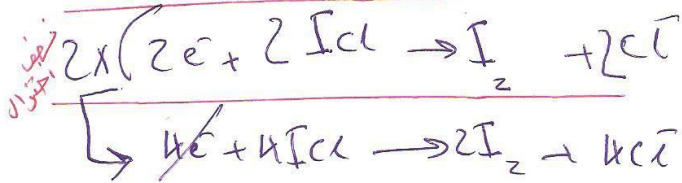 نصف اختزال
2×(2e⁻ + 2ICl → I₂ + 2Cl⁻
4e⁻ + 4ICl → 2I₂ + 4Cl⁻